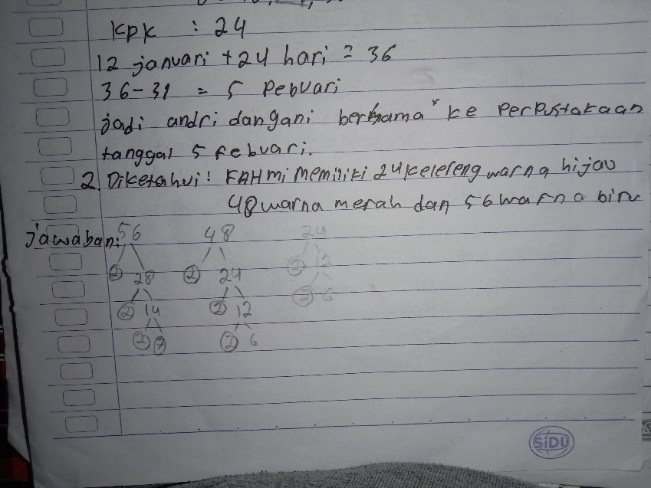 KPK : 24
12 januari + 24 hari = 36
36-31 = 5 Pebuari
jadi andri dan gani bersama" ke Perpustakaan
tanggal 5 febuari.
2. Diketahui: FAHmi memiliki 24 kelereng warna hijau
48 warna merah dan 56 warna biru
jawaban: 56 48 24
2 28 2 24 2 12
2 14 2 12 2 6
2 7 2 6
SiDU